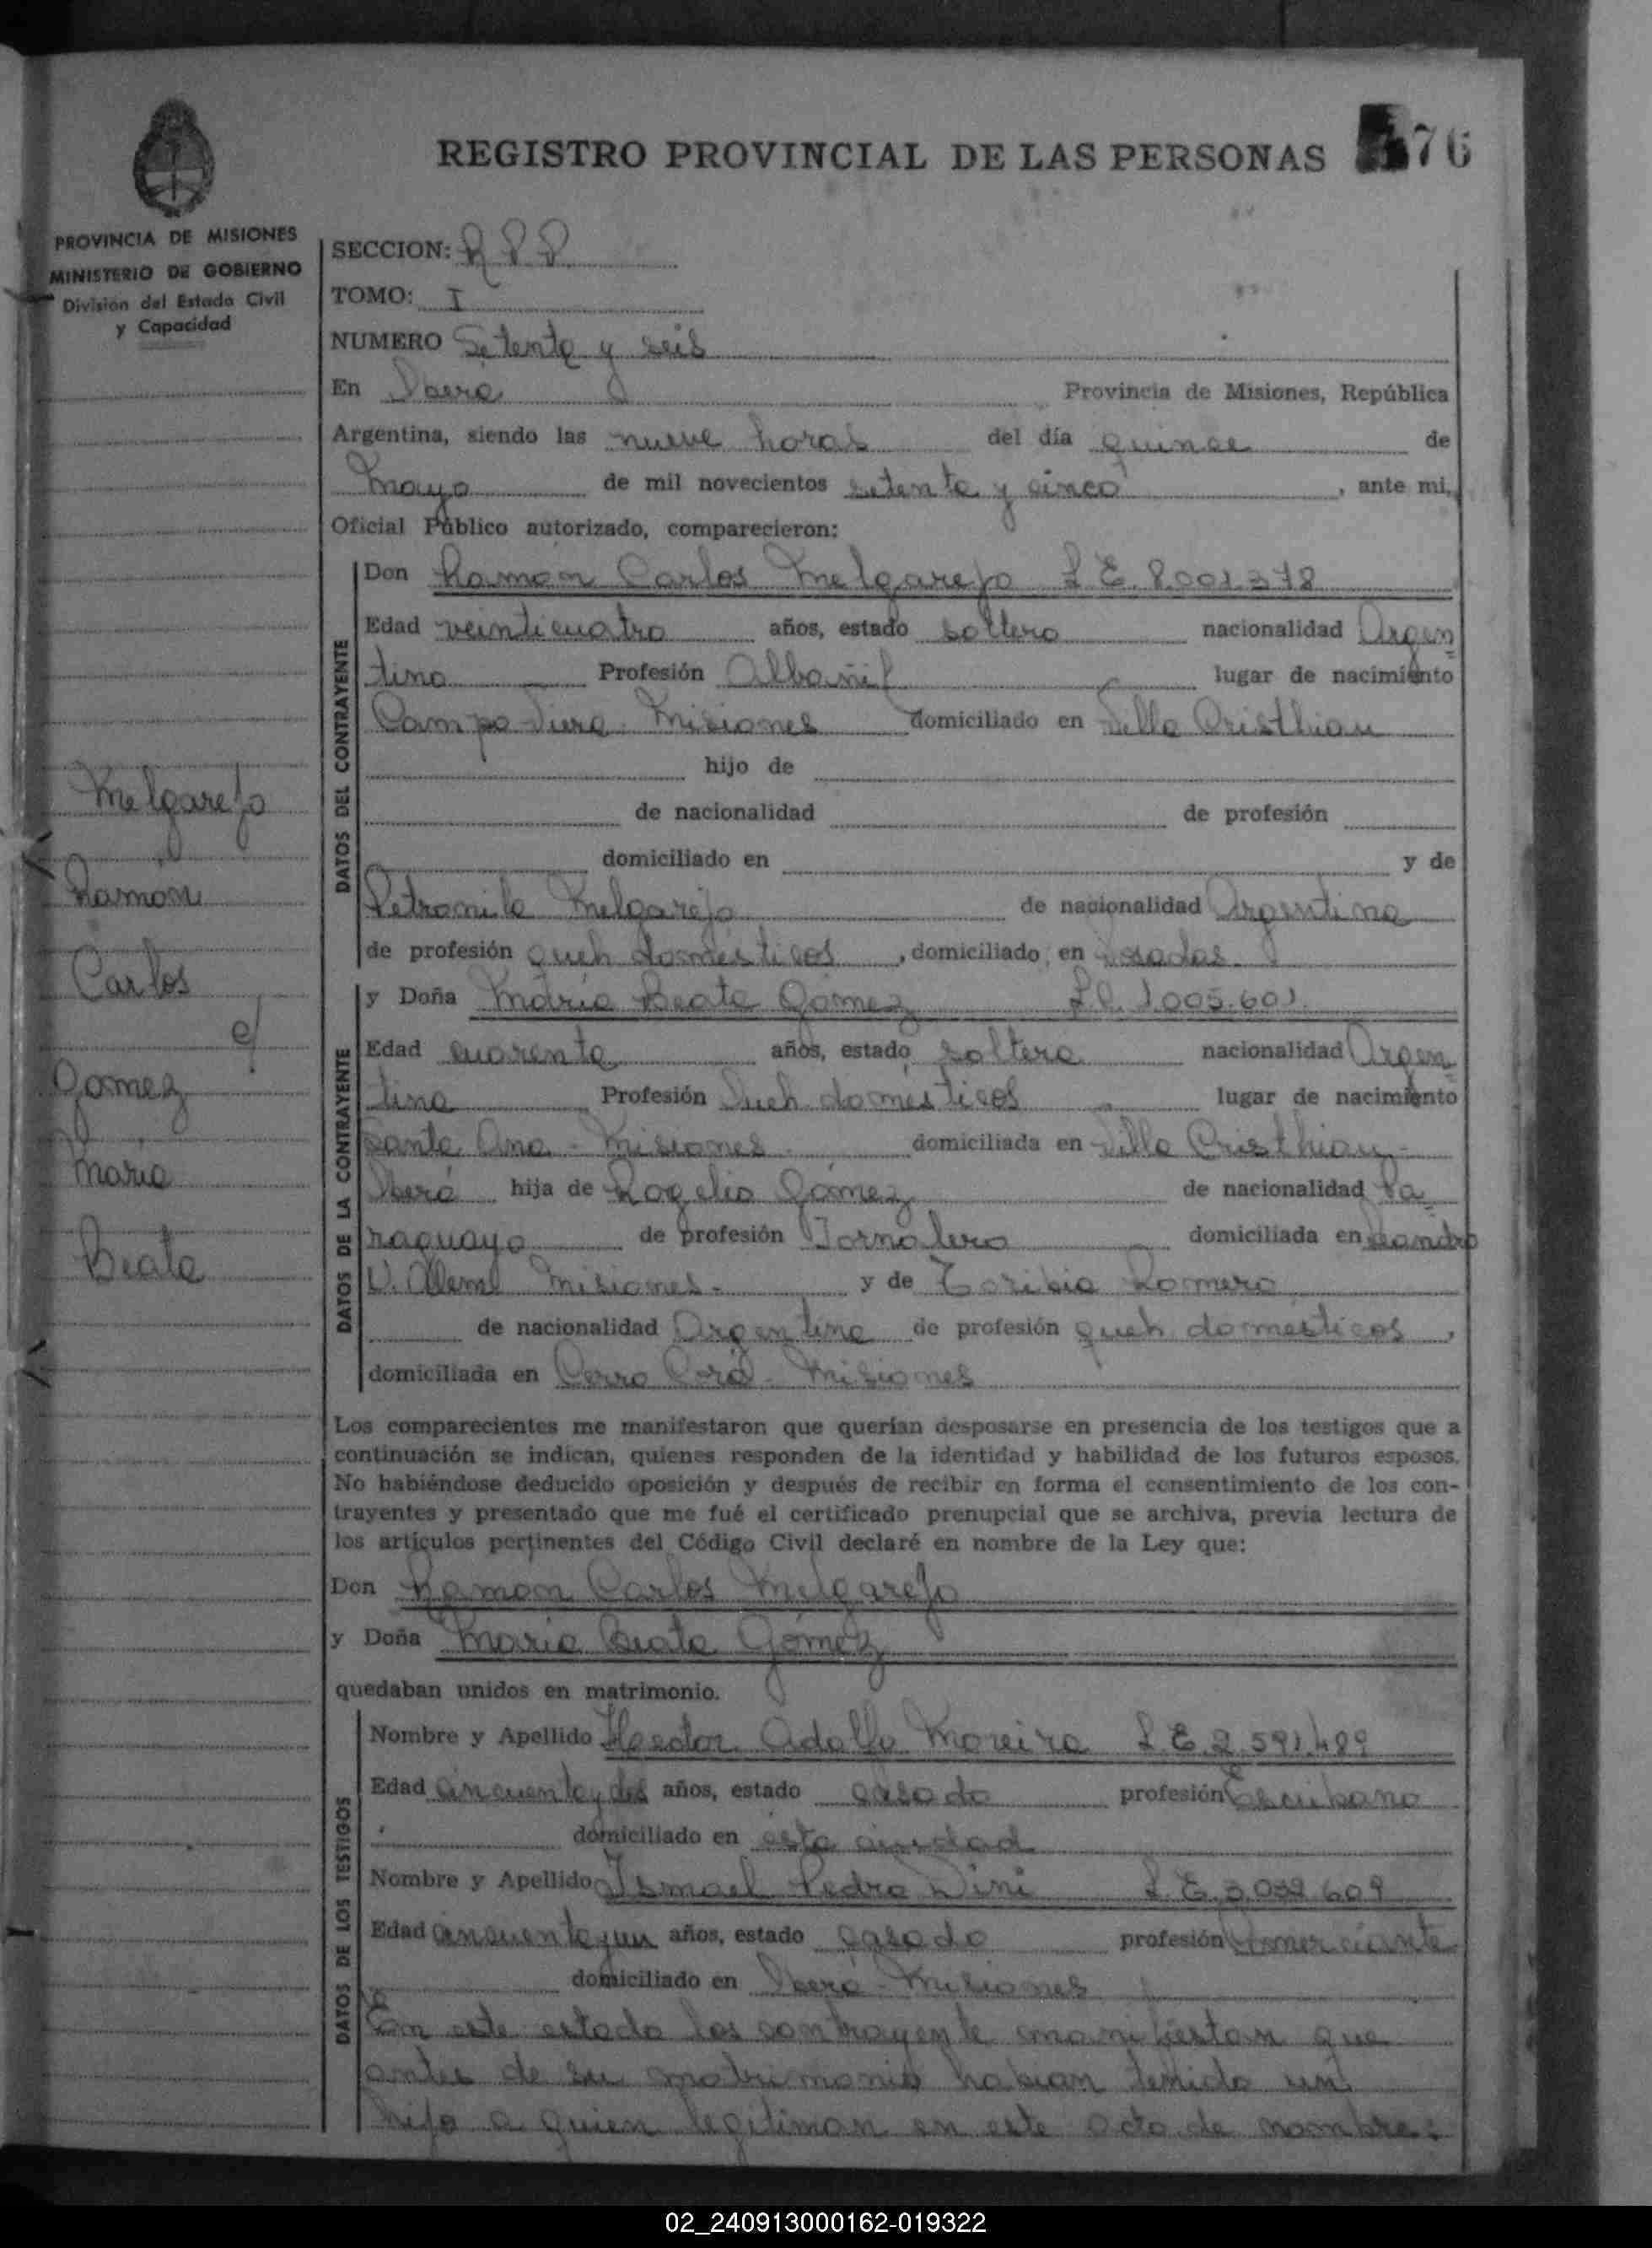 REGISTRO PROVINCIAL DE LAS PERSONAS 76
PROVINCIA DE MISIONES
MINISTERIO DE GOBIERNO
División del Estado Civil
y Capacidad
SECCION:
TOMO: I
NUMERO Setenta y seis
En Provincia de Misiones, República
Argentina, siendo las nueve horas del día quince de
Mayo de mil novecientos setenta y cinco, ante mi,
Oficial Público autorizado, comparecieron:
DATOS DEL CONTRAYENTE
Don Ramon Carlos Melgarejo L E. 8.001.378
Edad veinticuatro años, estado soltero nacionalidad Argen
tino Profesión Albañil lugar de nacimiento
Campo Viera - Misiones domiciliado en Villa Cristhian
hijo de
de nacionalidad de profesión
domiciliado en y de
Petronila Melgarejo de nacionalidad Argentina
de profesión queh domésticos, domiciliado en Posadas
Melgarejo
Ramón
Carlos
c/
Gomez
Maria
Beata
DATOS DE LA CONTRAYENTE
y Doña María Beata Gómez L.C. 1.005.601.
Edad cuarenta años, estado soltera nacionalidad Argen
tina Profesión Queh domésticos lugar de nacimiento
Santa Ana - Misiones. domiciliada en Villa Cristhian -
hija de Rogelio Gómez de nacionalidad Pa
raguayo de profesión Jornalero domiciliada en Leandro
N. Alem Misiones - y de Toribia Romero
de nacionalidad Argentina de profesión queh domésticos,
domiciliada en Cerro Corá - Misiones
Los comparecientes me manifestaron que querían desposarse en presencia de los testigos que a
continuación se indican, quienes responden de la identidad y habilidad de los futuros esposos.
No habiéndose deducido oposición y después de recibir en forma el consentimiento de los con-
trayentes y presentado que me fué el certificado prenupcial que se archiva, previa lectura de
los artículos pertinentes del Código Civil declaré en nombre de la Ley que:
Don Ramon Carlos Melgarejo
y Doña Maria Beata Gómez
quedaban unidos en matrimonio.
DATOS DE LOS TESTIGOS
Nombre y Apellido Hector Adolfo Moreira L E. 2.591.489
Edad cincuenta y dos años, estado casado profesión Escribano
domiciliado en esta ciudad
Nombre y Apellido Ismael Pedro Dini L E. 3.032.609
Edad cincuenta y un años, estado casado profesión Comerciante
domiciliado en Misiones
En este estado los contrayente manifiestan que
antes de su matrimonio habian tenido un
hijo a quien legitiman en este acto de nombre:
02_240913000162-019322